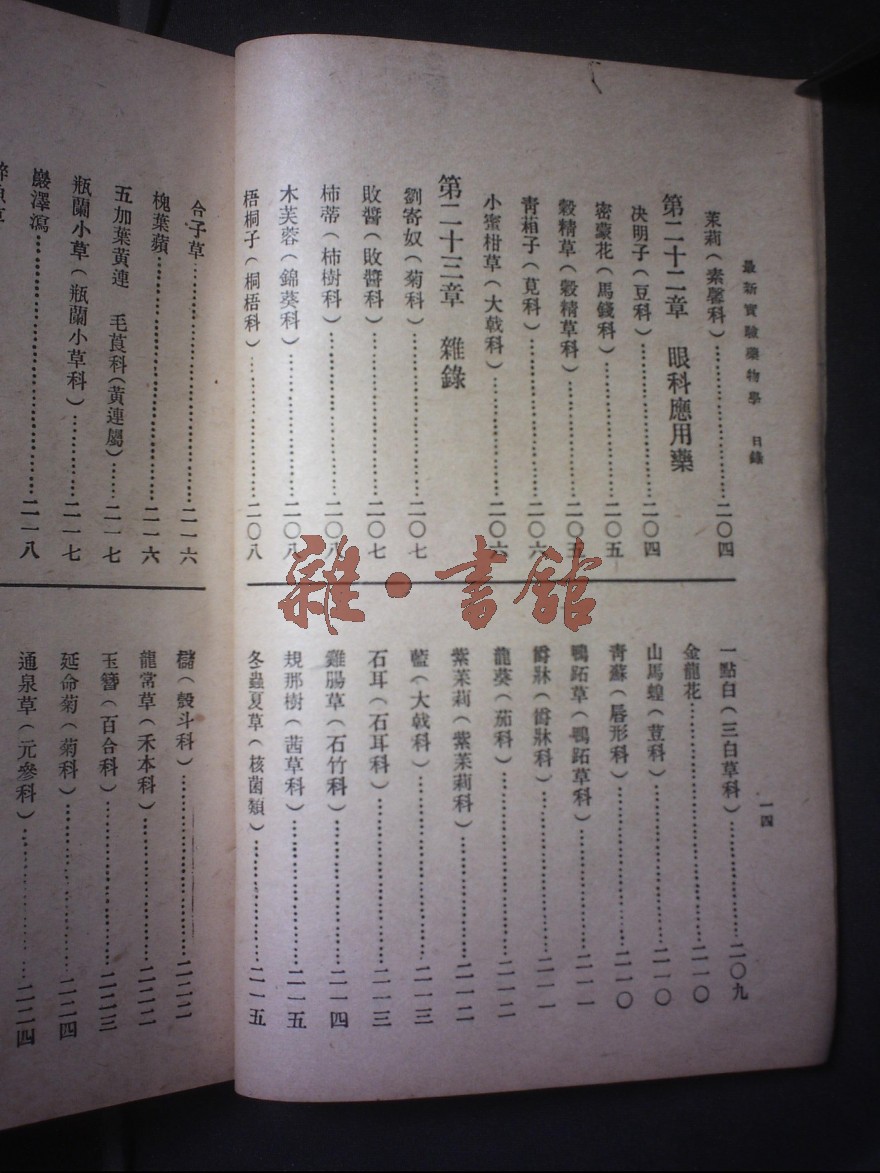 最新實驗藥物學　日錄
一四
茉莉（素馨科）……二〇四
第二十二章　眼科應用藥
决明子（豆科）……二〇四
密蒙花（馬錢科）……二〇五
穀精草（穀精草科）……二〇五
青葙子（莧科）……二〇六
小蜜柑草（大戟科）……二〇六
第二十三章　雜錄
劉寄奴（菊科）……二〇七
敗醬（敗醬科）……二〇七
柿蒂（柿樹科）……二〇八
木芙蓉（錦葵科）……二〇八
梧桐子（桐梧科）……二〇八
一點白（三白草科）……二〇九
金龍花……二一〇
山馬蝗（荳科）……二一〇
青蘇（唇形科）……二一〇
鴨跖草（鴨跖草科）……二一一
爵牀（爵牀科）……二一一
龍葵（茄科）……二一二
紫茉莉（紫茉莉科）……二一二
藍（大戟科）……二一三
石耳（石耳科）……二一三
雞腸草（石竹科）……二一四
規那樹（茜草科）……二一五
冬蟲夏草（核菌類）……二一五
合子草……二一六
槐葉蘋……二一六
五加葉黃連　毛莨科（黃連屬）……二一七
瓶蘭小草（瓶蘭小草科）……二一七
巖澤瀉……二一八
櫧（殼斗科）……二二二
龍常草（禾本科）……二二二
玉簪（百合科）……二二三
延命菊（菊科）……二二四
通泉草（元參科）……二二四
雜·書舘